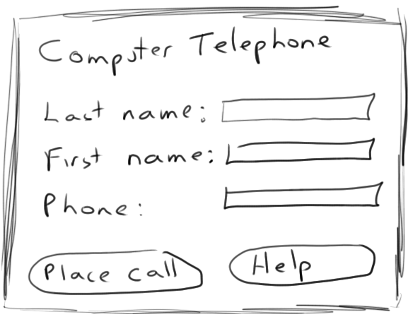 Computer Telephone
Last name:
First name:
Phone:
Place call Help